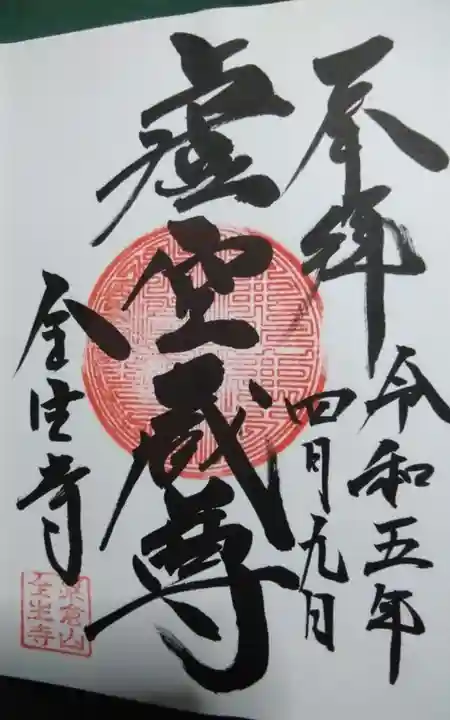 奉拝
令和五年
四月九日
虚空蔵尊
全生寺
全生寺